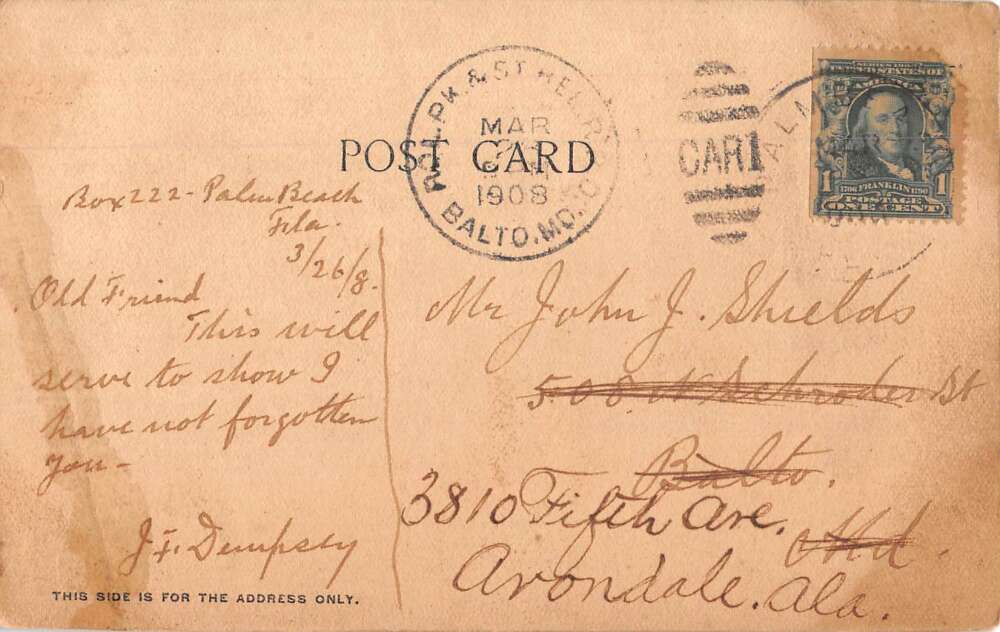 ROL. PK. & ST. HEL.
MAR
1908
BALTO. MD.
CAR 1
SERIES 1902
UNITED STATES OF
AMERICA
1 1
1706 FRANKLIN 1790
POSTAGE
ONE CENT
POST CARD
Box 222 - Palm Beach
Fla.
3/26/8.
Old Friend
This will
serve to show I
have not forgotten
you -
J. F. Dempsey
Mr John J. Shields
508 N Schroder St
Balto.
Md.
3810 Fifth Ave.
Avondale. Ala.
THIS SIDE IS FOR THE ADDRESS ONLY.